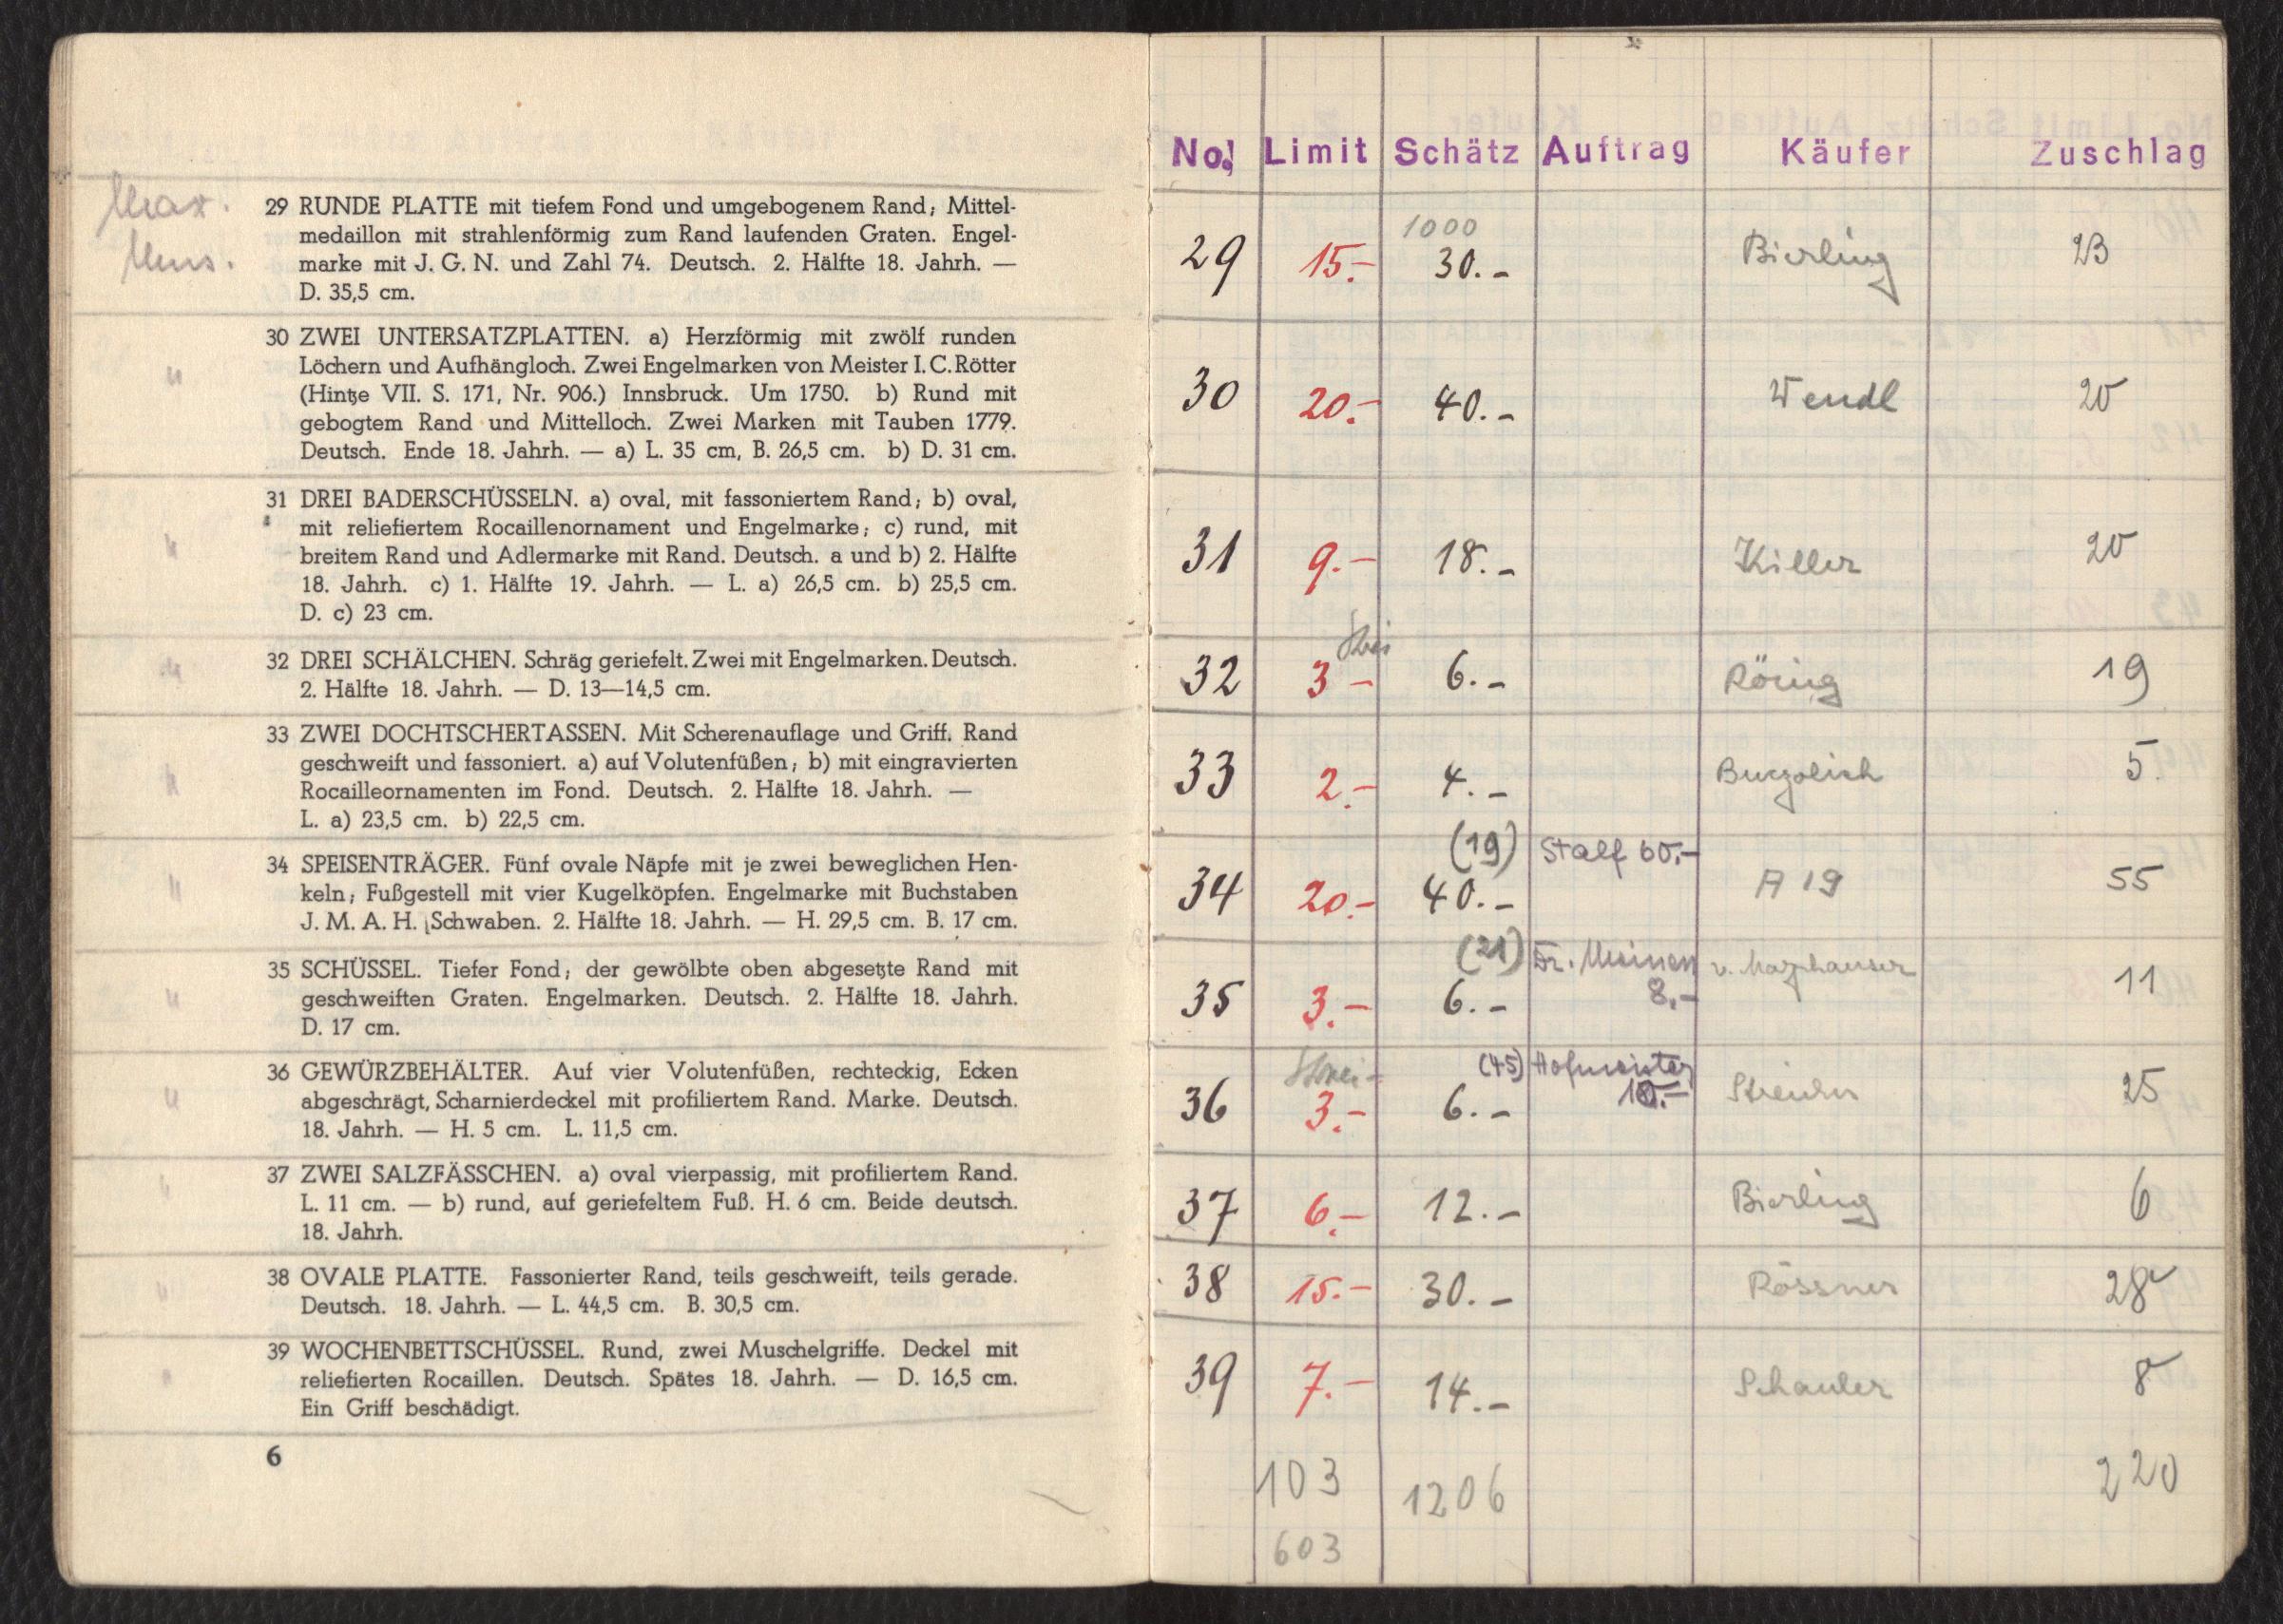 Max.
Mus.
29 RUNDE PLATTE mit tiefem Fond und umgebogenem Rand; Mittel-
medaillon mit strahlenförmig zum Rand laufenden Graten. Engel-
marke mit J. G. N. und Zahl 74. Deutsch. 2. Hälfte 18. Jahrh. —
D. 35,5 cm.
30 ZWEI UNTERSATZPLATTEN. a) Herzförmig mit zwölf runden
Löchern und Aufhängloch. Zwei Engelmarken von Meister I. C. Rötter
(Hintze VII. S. 171, Nr. 906.) Innsbruck. Um 1750. b) Rund mit
gebogtem Rand und Mittelloch. Zwei Marken mit Tauben 1779.
Deutsch. Ende 18. Jahrh. — a) L. 35 cm, B. 26,5 cm. b) D. 31 cm.
31 DREI BADERSCHÜSSELN. a) oval, mit fassoniertem Rand; b) oval,
mit reliefiertem Rocaillenornament und Engelmarke; c) rund, mit
breitem Rand und Adlermarke mit Rand. Deutsch. a und b) 2. Hälfte
18. Jahrh. c) 1. Hälfte 19. Jahrh. — L. a) 26,5 cm. b) 25,5 cm.
D. c) 23 cm.
32 DREI SCHÄLCHEN. Schräg geriefelt. Zwei mit Engelmarken. Deutsch.
2. Hälfte 18. Jahrh. — D. 13—14,5 cm.
33 ZWEI DOCHTSCHERTASSEN. Mit Scherenauflage und Griff. Rand
geschweift und fassoniert. a) auf Volutenfüßen; b) mit eingravierten
Rocailleornamenten im Fond. Deutsch. 2. Hälfte 18. Jahrh. —
L. a) 23,5 cm. b) 22,5 cm.
34 SPEISENTRÄGER. Fünf ovale Näpfe mit je zwei beweglichen Hen-
keln; Fußgestell mit vier Kugelköpfen. Engelmarke mit Buchstaben
J. M. A. H. Schwaben. 2. Hälfte 18. Jahrh. — H. 29,5 cm. B. 17 cm.
35 SCHÜSSEL. Tiefer Fond; der gewölbte oben abgesetzte Rand mit
geschweiften Graten. Engelmarken. Deutsch. 2. Hälfte 18. Jahrh.
D. 17 cm.
36 GEWÜRZBEHÄLTER. Auf vier Volutenfüßen, rechteckig, Ecken
abgeschrägt, Scharnierdeckel mit profiliertem Rand. Marke. Deutsch.
18. Jahrh. — H. 5 cm. L. 11,5 cm.
37 ZWEI SALZFÄSSCHEN. a) oval vierpassig, mit profiliertem Rand.
L. 11 cm. — b) rund, auf geriefeltem Fuß. H. 6 cm. Beide deutsch.
18. Jahrh.
38 OVALE PLATTE. Fassonierter Rand, teils geschweift, teils gerade.
Deutsch. 18. Jahrh. — L. 44,5 cm. B. 30,5 cm.
39 WOCHENBETTSCHÜSSEL. Rund, zwei Muschelgriffe. Deckel mit
reliefierten Rocaillen. Deutsch. Spätes 18. Jahrh. — D. 16,5 cm.
Ein Griff beschädigt.
6
No. Limit Schätz Auftrag Käufer Zuschlag
1000
29 15.- 30.- Bierling 23
30 20.- 40.- Wendl 20
31 9.- 18.- Killer 20
32 3 - 6.- Röing 19
33 2.- 4.- 5
(19) Stalf 60.-
34 20.- 40.- A 19 55
(21) Dr. Meinen
35 3.- 6.- 8.- 11
(45) Hofmeister
36 3.- 6.- 10.- 25
37 6.- 12.- Bierling 6
38 15.- 30.- Rössner 28
39 7.- 14.- Schauler 8
103 1206 220
603